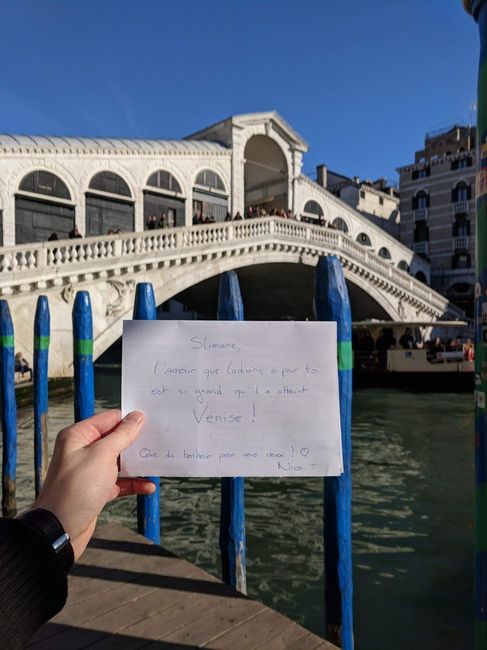 Slimane,
l'amour que Ludivine a pour toi
est si grand qu'il a atteint
Venise !
Que du bonheur pour vous deux ! ♡
Nico T